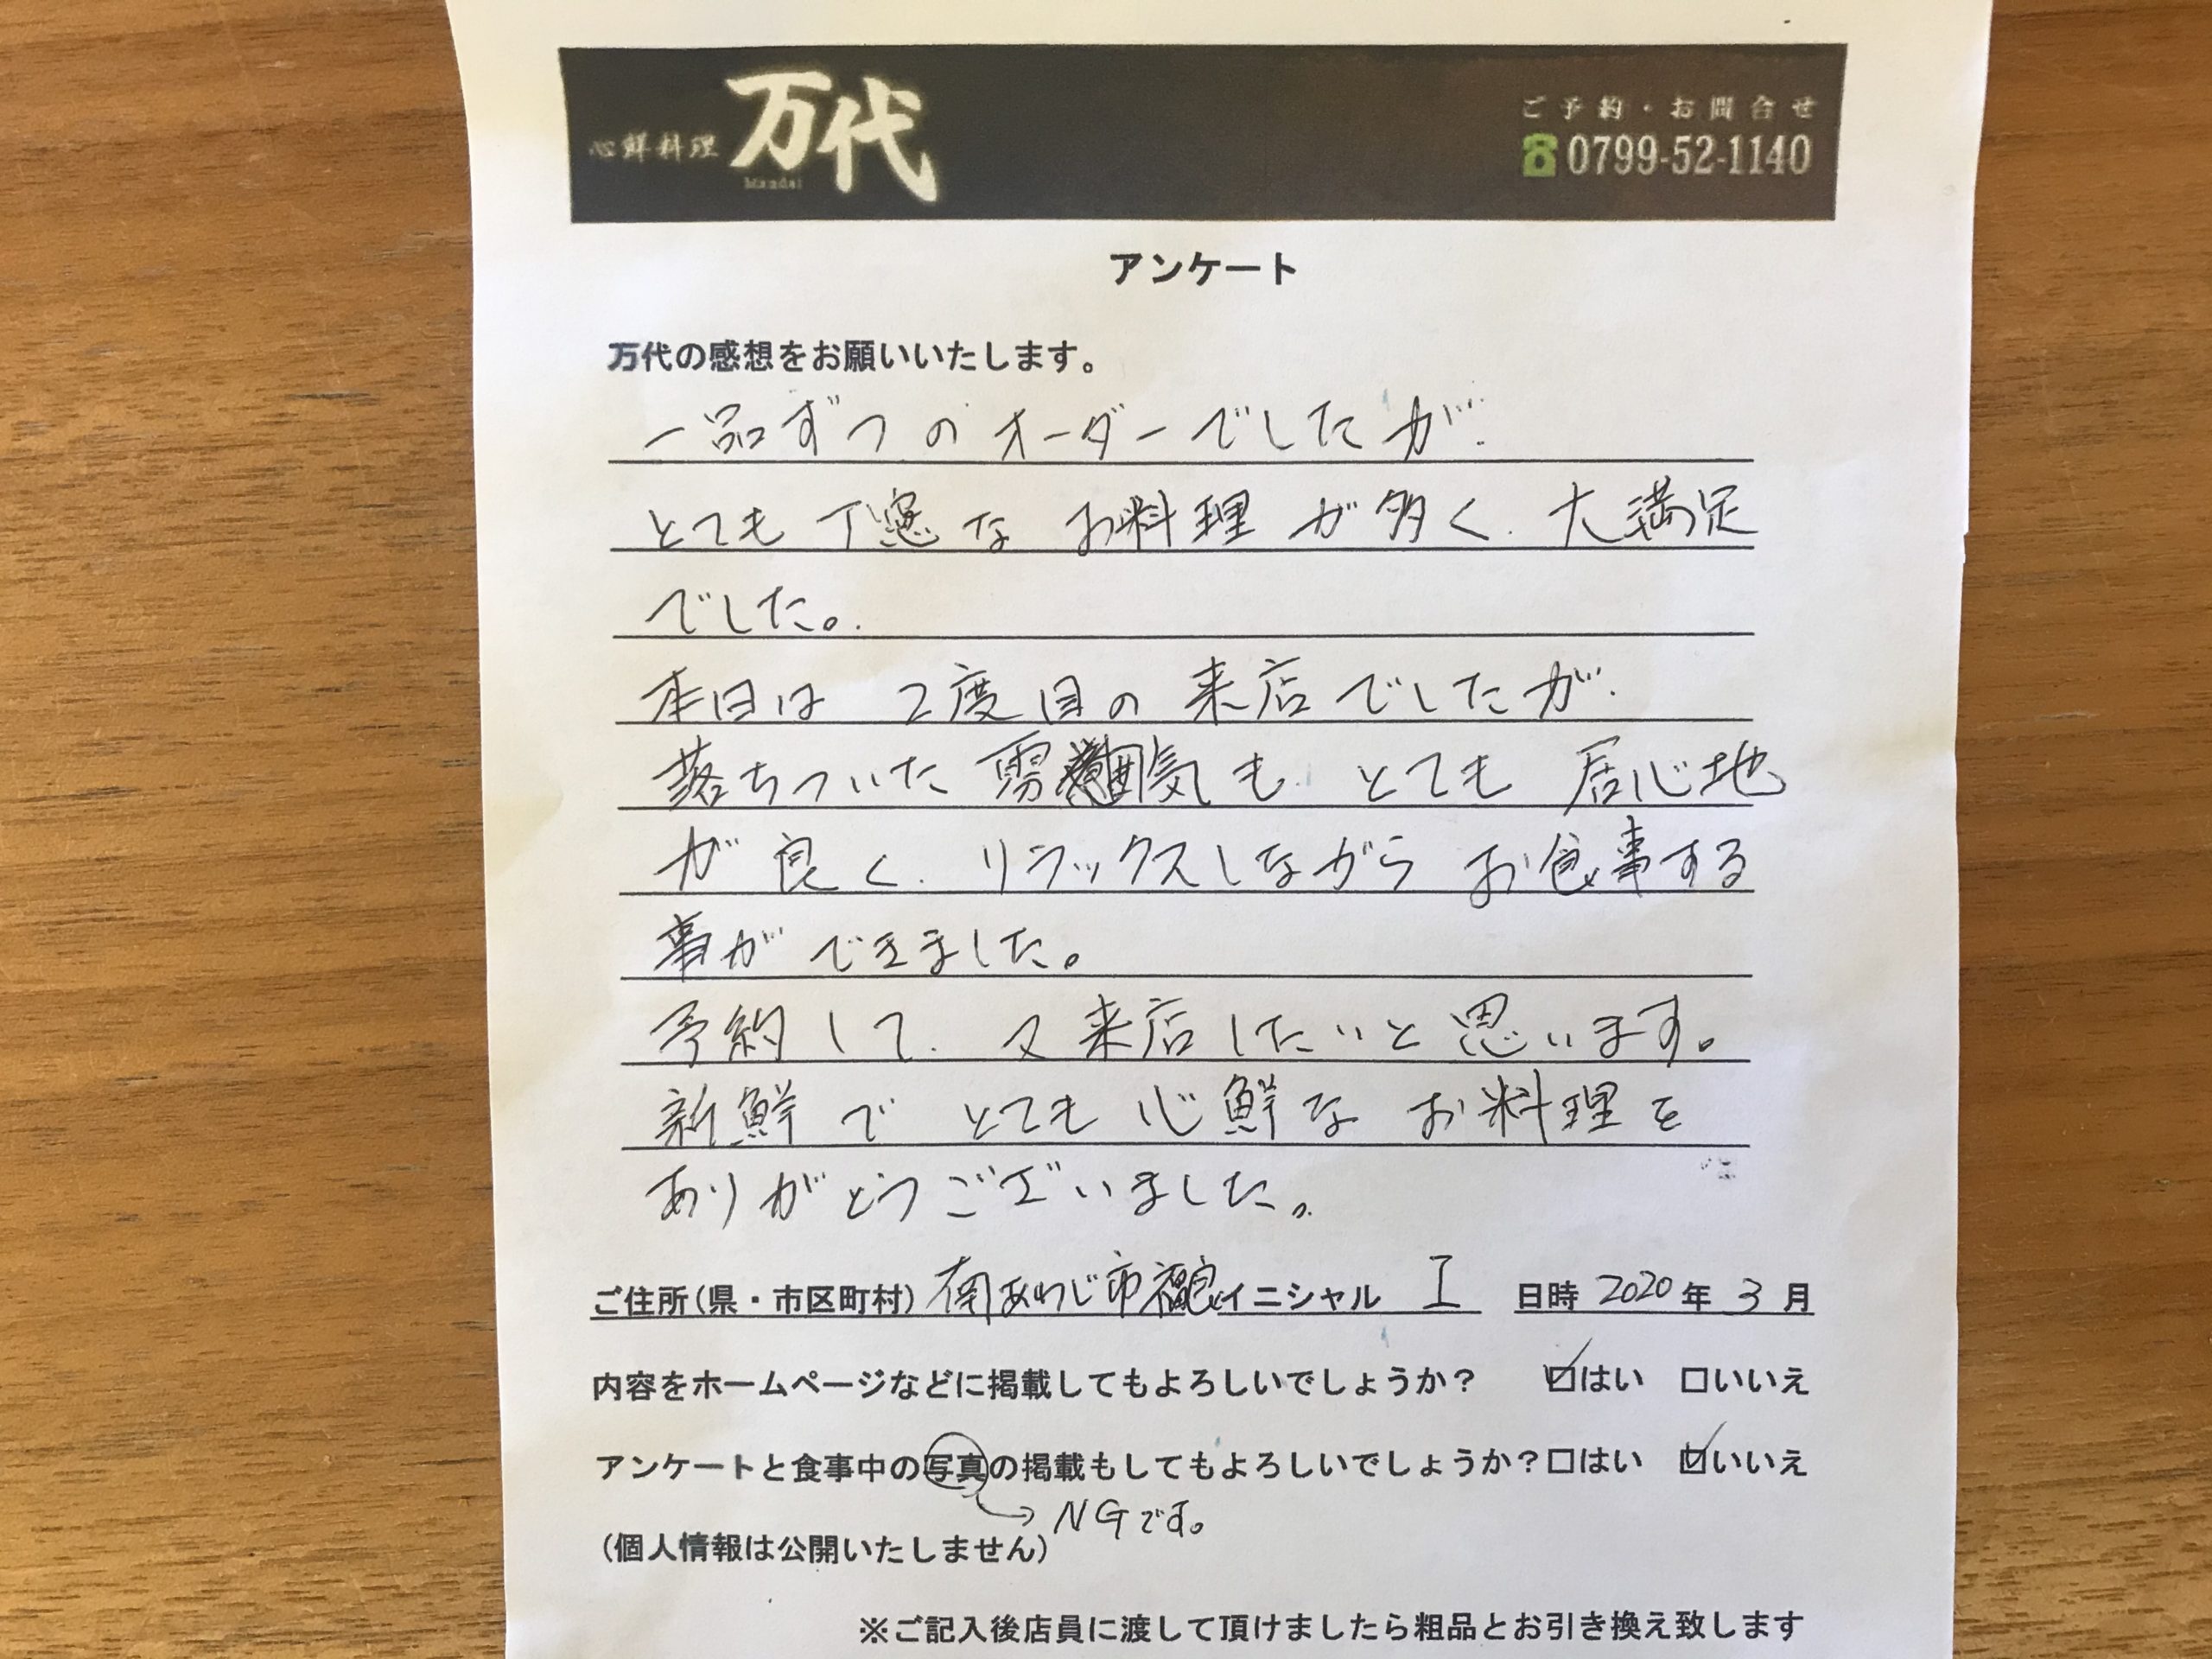 心鮮料理 万代
Mandai
ご予約・お問合せ
0799-52-1140
アンケート
万代の感想をお願いいたします。
一品ずつのオーダーでしたが、
とても丁寧なお料理が多く、大満足
でした。
本日は2度目の来店でしたが、
落ちついた雰囲気も、とても居心地
が良く、リラックスしながらお食事する
事ができました。
予約して、又来店したいと思います。
新鮮でとても心鮮なお料理を
ありがとうございました。
ご住所(県・市区町村) 南あわじ市福良 イニシャル I 日時 2020年 3月
内容をホームページなどに掲載してもよろしいでしょうか? ☑はい □いいえ
アンケートと食事中の写真の掲載もしてもよろしいでしょうか?□はい ☑いいえ
→NGです。
(個人情報は公開いたしません)
※ご記入後店員に渡して頂けましたら粗品とお引き換え致します